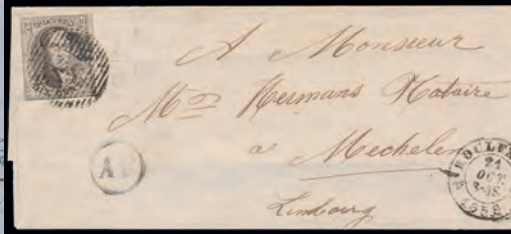 A Monsieur
Mr Hermans Notaire
a Mechelen
Limbourg
21
OCT